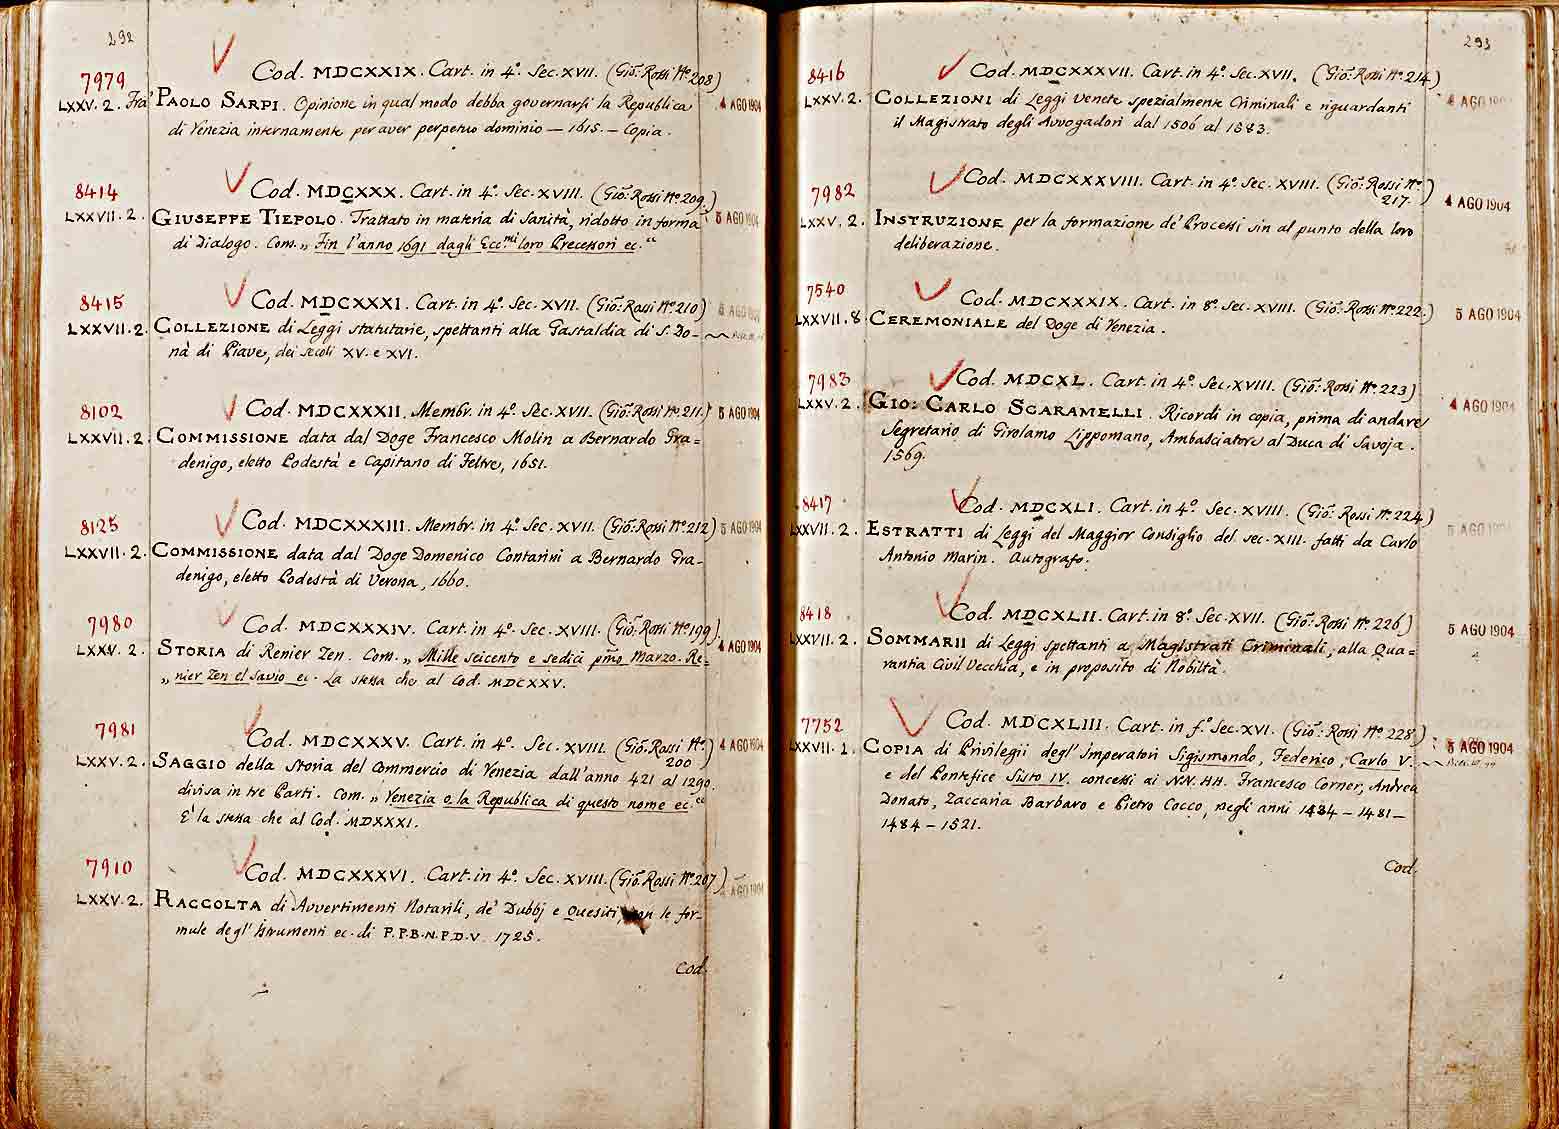 292
7979 Cod. MDCXXIX. Cart. in 4º. Sec. XVII. (Gio: Rossi Nº 208)
LXXV. 2. Fra PAOLO SARPI. Opinione in qual modo debba governarsi la Republica 4 AGO 1904
di Venezia internamente per aver perpetuo dominio — 1615. — Copia.
8414 Cod. MDCXXX. Cart. in 4º. Sec. XVIII. (Gio: Rossi Nº 209.)
LXXVII. 2. GIUSEPPE TIEPOLO. Trattato in materia di Sanità, ridotto in forma 5 AGO 1904
di Dialogo. Com. „ Fin l'anno 1691 dagli Ecc.mi loro Precessori ec."
8415 Cod. MDCXXXI. Cart. in 4º. Sec. XVII. (Gio: Rossi Nº 210)
LXXVII. 2. COLLEZIONE di Leggi statutarie, spettanti alla Gastaldia di S. Do- 5 AGO
nà di Piave, dei secoli XV. e XVI.
8102 Cod. MDCXXXII. Membr. in 4º. Sec. XVII. (Gio: Rossi Nº 211.) 5 AGO 1904
LXXVII. 2. COMMISSIONE data dal Doge Francesco Molin a Bernardo Gra=
denigo, eletto Podestà e Capitano di Feltre, 1651.
8125 Cod. MDCXXXIII. Membr. in 4º. Sec. XVII. (Gio: Rossi Nº 212) 5 AGO 1904
LXXVII. 2. COMMISSIONE data dal Doge Domenico Contarini a Bernardo Gra-
denigo, eletto Podestà di Verona, 1660.
7980 Cod. MDCXXXIV. Cart. in 4º. Sec. XVIII. (Gio: Rossi Nº 199)
LXXV. 2. STORIA di Renier Zen. Com. „ Mille seicento e sedici pmo Marzo. Re= 4 AGO 1904
„ nier Zen el Savio ec. La stessa che al Cod. MDCXXV.
7981 Cod. MDCXXXV. Cart. in 4º. Sec. XVIII. (Gio: Rossi Nº 200) 4 AGO 1904
LXXV. 2. SAGGIO della Storia del Commercio di Venezia dall'anno 421 al 1290.
divisa in tre Parti. Com. „ Venezia o la Republica di questo nome ec."
È la stessa che al Cod. MDXXXI.
7910 Cod. MDCXXXVI. Cart. in 4º. Sec. XVIII. (Gio: Rossi Nº 207)
LXXV. 2. RACCOLTA di Avvertimenti Notarili, de' Dubbj e Quesiti, con le for- AGO 1904
mule degl' Istrumenti ec. di P.P.B.N.P.D.V. 1725.
Cod.
293
8416 Cod. MDCXXXVII. Cart. in 4º. Sec. XVII. (Gio: Rossi Nº 214)
LXXV. 2. COLLEZIONI di Leggi Venete spezialmente Criminali e riguardanti 4 AGO 1904
il Magistrato degli Avvogadori dal 1506 al 1683.
7982 Cod. MDCXXXVIII. Cart. in 4º. Sec. XVIII. (Gio: Rossi Nº 217.) 4 AGO 1904
LXXV. 2. INSTRUZIONE per la formazione de' Processi sin al punto della loro
deliberazione.
7540 Cod. MDCXXXIX. Cart. in 8º. Sec. XVIII. (Gio: Rossi Nº 222.) 5 AGO 1904
LXXVII. 8 CEREMONIALE del Doge di Venezia.
7983 Cod. MDCXL. Cart. in 4º. Sec. XVIII. (Gio: Rossi Nº 223)
LXXV. 2. GIO: CARLO SCARAMELLI. Ricordi in copia, prima di andare 4 AGO 1904
Segretario di Girolamo Lippomano, Ambasciatore al Duca di Savoja.
1569.
8417 Cod. MDCXLI. Cart. in 4º. Sec. XVIII. (Gio: Rossi Nº 224)
LXXVII. 2. ESTRATTI di Leggi del Maggior Consiglio del sec. XIII. fatti da Carlo 5 AGO 1904
Antonio Marin. Autografo.
8418 Cod. MDCXLII. Cart. in 8º. Sec. XVII. (Gio: Rossi Nº 226) 5 AGO 1904
LXXVII. 2. SOMMARII di Leggi spettanti a Magistrati Criminali, alla Qua=
rantia Civil Vecchia, e in proposito di Nobiltà.
7752 Cod. MDCXLIII. Cart. in fº. Sec. XVI. (Gio: Rossi Nº 228)
LXXVII. 1. COPIA di Privilegii degl' Imperatori Sigismondo, Federico, Carlo V. 5 AGO 1904
e del Pontefice Sisto IV. concessi ai NN. HH. Francesco Corner, Andrea
Donato, Zaccaria Barbaro e Pietro Cocco, negli anni 1434 — 1481 —
1484 — 1521.
Cod.